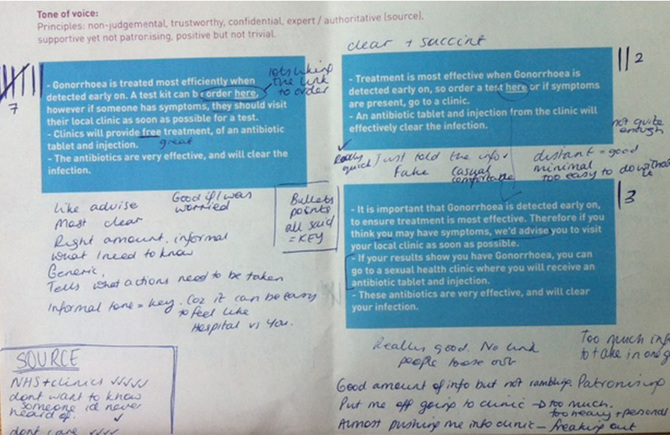 Tone of voice:
Principles: non-judgemental, trustworthy, confidential, expert / authoritative (source),
supportive yet not patronising, positive but not trivial.
7
- Gonorrhoea is treated most efficiently when
detected early on. A test kit can be order here,
however if someone has symptoms, they should visit
their local clinic as soon as possible for a test.
- Clinics will provide free treatment, of an antibiotic
tablet and injection.
- The antibiotics are very effective, and will clear the
infection.
great
lots liking
the link
to order
Like advise
Most clear
Right amount, informal
what I need to know
Generic,
Tells what actions need to be taken
Informal tone = key. Coz it can be easy
to feel like
Hospital vs You.
Good if I was
worried
Bullets
points
all said
= KEY
SOURCE
NHS + clinics
dont want to know
someone id never
heard of.
dont care
clear + succint
2
- Treatment is most effective when Gonorrhoea is
detected early on, so order a test here or if symptoms
are present, go to a clinic.
- An antibiotic tablet and injection from the clinic will
effectively clear the infection.
not quite
enough
Really
quick
Just told the info.
Fake casual
comfortable
distant = good
minimal
too easy to do without
3
- It is important that Gonorrhoea is detected early on,
to ensure treatment is most effective. Therefore if you
think you may have symptoms, we'd advise you to visit
your local clinic as soon as possible.
- If your results show you have Gonorrhoea, you can
go to a sexual health clinic where you will receive an
antibiotic tablet and injection.
- These antibiotics are very effective, and will clear
your infection.
Really good. No link
people
Too much info
to take in one go
Good amount of info but not rambling Patronising
Put me off going to clinic → too much.
too heavy + personal
Almost pushing me into clinic – freaking out